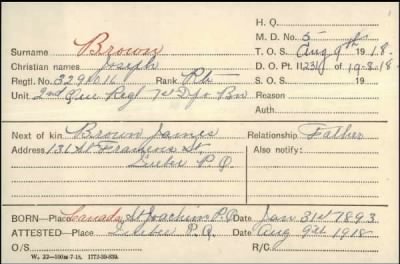 H. Q.
M. D. No. 5
Surname Brown T. O. S. Aug 9th 1918.
Christian names Joseph D. O. Pt. II 231 of 19-8-18
Regtl. No. Rank Pte S. O. S. 19
Unit 2nd Que Regt 1st Dpo Bn Reason
Auth.
Next of kin Brown James Relationship Father
Address 131 St Francois St, Also notify:
Quebec P.Q.
BORN—Place Canada St Joachim P.Q. Date Jan 31st 1893
ATTESTED—Place Quebec P.Q. Date Aug 9th 1918
O/S R/C.